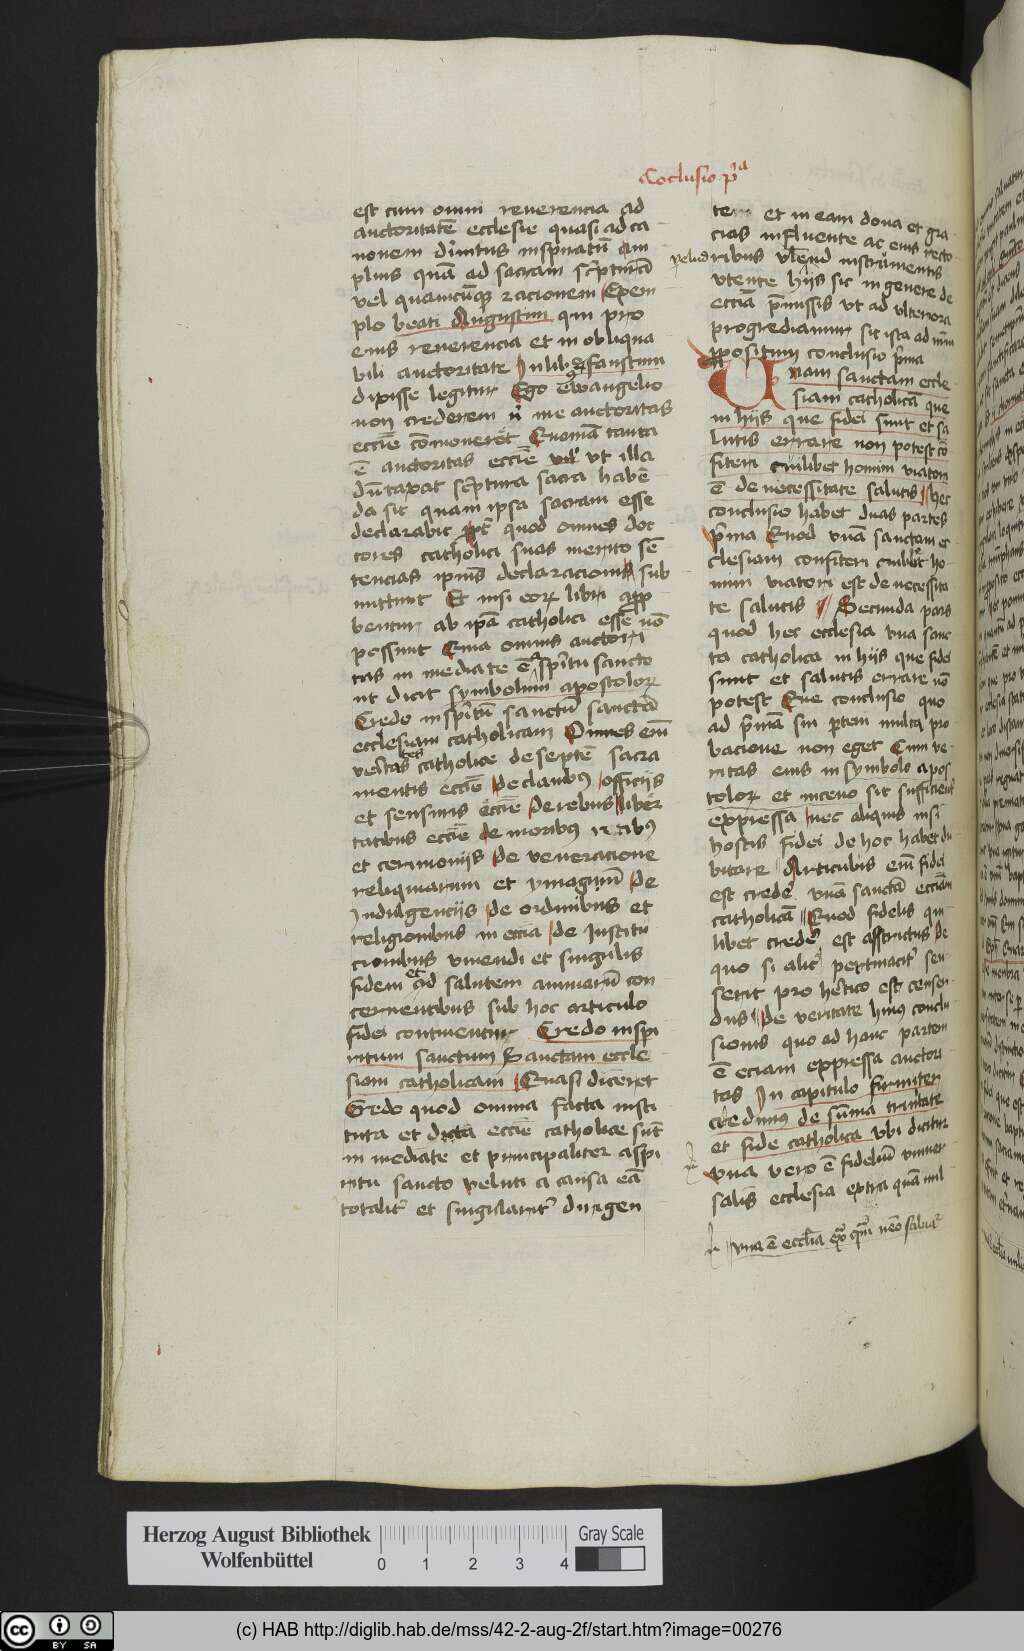 Co̅clusio p̅ᵃ
est cum omni reuerencia ad
auctoritate̅ ecclesie quasi ad ca
nonem diuinitus inspiratu̅ am
plius qua̅ ad sacram sc̅ptura̅
vel quamcu̅q; racionem Exem
plo beati Augustini qui pro
eius reuerencia et in obliqua
bili auctoritate In libro ɔ faustum
dixisse legitur Ego ewangelio
non crederem ni me auctoritas
eccl̅ie co̅moneret Quonia̅ tanta
e̅ auctoritas eccl̅ie ut illa
du̅taxat sc̅ptura sacra habe̅
da sit quam ipsa sacram esse
declarabit quod omnes doc
tores catholici suas merito se̅
tencias ipius declaracioni sub
mittunt Et nisi eor̄ libri app
bentur ab ip̅a catholici esse no̅
possunt Quia omnis auctori
tas in mediate e̅ a sp̅iritu sancto
ut dicit symbolum apostolor̄
Credo in sp̅iritu̅ sanctu̅ sancta̅
ecclesiam catholicam Omnes em̅
veritates catholice de septe̅ sacra
mentis eccl̅ie De clauibꝰ officiis
et sensuris eccl̅ie De rebus liber
tatibus eccl̅ie de moribꝰ ritibꝰ
et cerimoniis De veneracione
reliquiarum et ymaginu̅ De
Indulgenciis de ordinibus et
religionibus in eccl̅ia de Institu
cionibus viuendi et singulis
fidem et ad salutem animaru̅ con
cernentibus sub hoc articulo
fidei continentur Credo in spi
ritum sanctum Sanctam eccle
siam catholicam Quasi diceret
Credo quod omnia facta insti
tuta et dicta eccl̅ie catholice su̅t
in mediate et principaliter a spi
ritu sancto veluti a causa ea̅
totalit' et singularit' dirigen
tem et in eam dona et gra
cias influente ac eius recto
ribus vel̅ud instrumentis
vtente hiis sic in genere de
eccl̅ia p̅missis vt ad vlteriora
progrediamur sit ista ad n̅rm
ppositum conclusio p̅ima
Unam sanctam eccle
siam catholica̅ que
in hiis que fidei sunt et sa
lutis errare non potest co̅
fiteri cuilibet homini viatori
e̅ de necessitate salutis Hec
conclusio habet duas partes
p̅ima Quod vna̅ sanctam ec
clesiam confiteri cuilibet ho
mini viatori est de necessita
te salutis Secunda pars
quod hec ecclesia vna sanc
ta catholica in hiis que fidei
sunt et salutis errare no̅
potest Que conclusio quo
ad p̅ima̅ sui p̅tem multa pro
bacione non eget Cum ve
ritas eius in symbolo apos
tolor̄ et niceno sit sufficient'
expressa nec aliquis nisi
hostis fidei de hoc habet du
bitare Articulus em̅ fidei
est crede̅ vna̅ sancta̅ eccl̅iam
catholica̅ Quod fidelis qui
libet crede̅ est asstrictus De
quo si alit' pertinacit' sen
serit pro h̅etico est censen
dus De veritate huius conclu
sionis quo ad hanc partem
e̅ eciam expressa auctori
tas In capitulo firmiter
credimus de su̅ma trinitate
et fide catholica vbi dicitur
vna vero e̅ fideliu̅ vniuer
salis ecclesia extra qua̅ nul
vna e̅ eccl̅ia ex̅ qua̅ nemo saluat̅
Herzog August Bibliothek
Wolfenbüttel
0 1 2 3 4
Gray Scale
cc BY SA
(c) HAB http://diglib.hab.de/mss/42-2-aug-2f/start.htm?image=00276